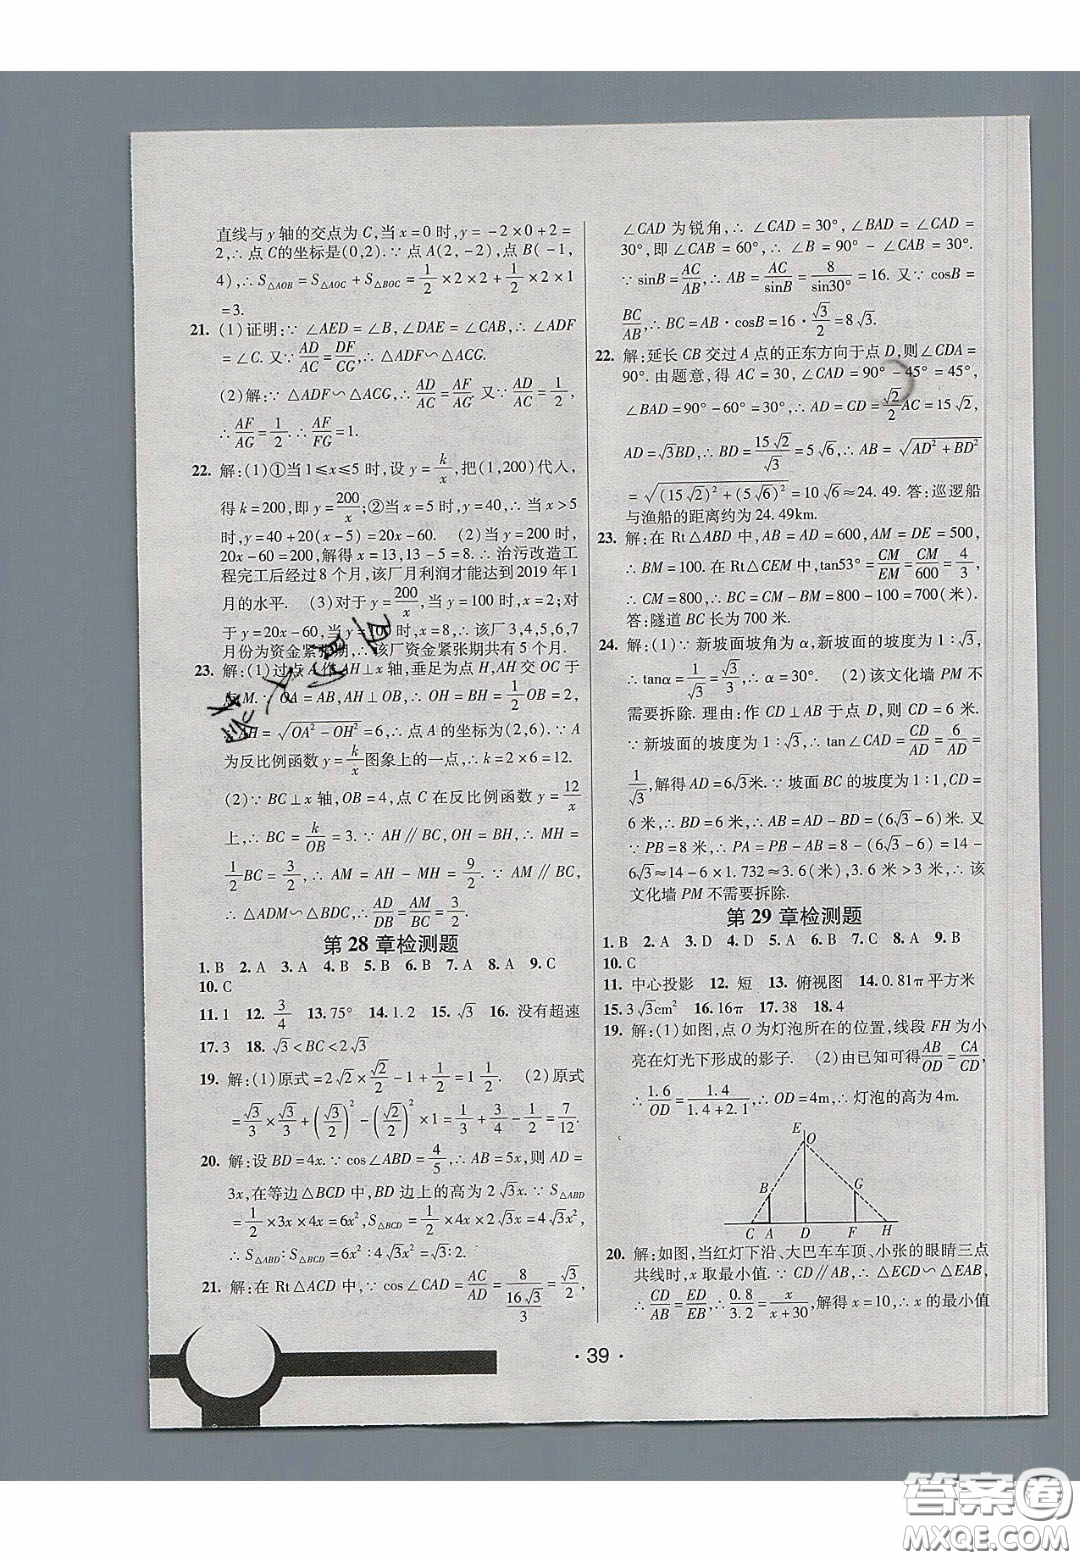 直线与 y 轴的交点为 C,当 x=0 时,y=-2×0+2=
2,∴点 C的坐标是(0,2).∵点 A(2,-2),点 B(-1,
4),∴S△AOB=S△AOC+S△BOC=1/2×2×2+1/2×2×1
=3.
21. (1)证明:∵∠AED=∠B,∠DAE=∠CAB,∴∠ADF
=∠C.又∵AD/AC=DF/CG,∴△ADF∽△ACG.
(2)解:∵△ADF∽△ACG,∴AD/AC=AF/AG.又∵AD/AC=1/2,
∴AF/AG=1/2.∴AF/FG=1.
22. 解:(1)①当1≤x≤5 时,设 y=k/x,把(1,200)代入,
得 k=200,即 y=200/x;②当 x=5 时,y=40,∴当 x>5
时,y=40+20(x-5)=20x-60. (2)当 y=200 时,
20x-60=200,解得 x=13,13-5=8.∴治污改造工
程完工后经过 8 个月,该厂月利润才能达到 2019 年 1
月的水平. (3)对于 y=200/x,当 y=100 时,x=2;对
于 y=20x-60,当 y=100 时,x=8,∴该厂 3,4,5,6,7
月份为资金紧张期,∴该厂资金紧张期共有 5 个月.
23. 解:(1)过点 A 作 AH⊥x 轴,垂足为点 H,AH 交 OC 于
点 M.∵OA=AB,AH⊥OB,∴OH=BH=1/2OB=2,
∴AH=√(OA²-OH²)=6,∴点 A 的坐标为(2,6).∵A
为反比例函数 y=k/x图象上的一点,∴k=2×6=12.
(2)∵BC⊥x 轴,OB=4,点 C 在反比例函数 y=12/x
上,∴BC=k/OB=3.∵AH∥BC,OH=BH,∴MH=
1/2BC=3/2,∴AM=AH-MH=9/2.∵AM∥BC,
∴△ADM∽△BDC,∴AD/DB=AM/BC=3/2.
第 28 章检测题
1. B 2. A 3. A 4. A 5. B 6. B 7. A 8. A 9. C
10. C
11. 1 12. 3/4 13. 75° 14. 1.2 15. √3 16. 没有超速
17. 3 18. √3<BC<2√3
19. 解:(1)原式=2√2×√2/2-1+1/2=1 1/2. (2)原式
=√3/3×√3/3+(√3/2)²-(√2/2)²×1=1/3+3/4-1/2=7/12.
20. 解:设 BD=4x.∵cos∠ABD=4/5,∴AB=5x,则 AD=
3x,在等边△BCD 中,BD 边上的高为 2√3x.∵S△ABD
=1/2×3x×4x=6x²,S△BCD=1/2×4x×2√3x=4√3x²,
∴S△ABD∶S△BCD=6x²∶4√3x²=√3/2.
21. 解:在 Rt△ACD 中,∵cos∠CAD=AC/AD=8/(16√3/3)=√3/2,
∠CAD 为锐角,∴∠CAD=30°,∠BAD=∠CAD=
30°,即∠CAB=60°,∴∠B=90°-∠CAB=30°.
∵sinB=AC/AB,∴AB=AC/sinB=8/sin30°=16.又∵cosB=
BC/AB,∴BC=AB·cosB=16·√3/2=8√3.
22. 解:延长 CB 交过 A 点的正东方向于点 D,则∠CDA=
90°.由题意,得 AC=30,∠CAD=90°-45°=45°,
∠BAD=90°-60°=30°,∴AD=CD=√2/2AC=15√2,
AD=√3BD,∴BD=15√2/√3=5√6,∴AB=√(AD²+BD²)
=√((15√2)²+(5√6)²)=10√6≈24.49.答:巡逻船
与渔船的距离约为 24.49km.
23. 解:在 Rt△ABD 中,AB=AD=600,AM=DE=500,
∴BM=100.在 Rt△CEM 中,tan53°=CM/EM=CM/600=4/3,
∴CM=800,∴BC=CM-BM=800-100=700(米).
答:隧道 BC 长为 700 米.
24. 解:(1)∵新坡面坡角为 α,新坡面的坡度为 1∶√3,
∴tanα=1/√3=√3/3,∴α=30°. (2)该文化墙 PM 不
需要拆除.理由:作 CD⊥AB 于点 D,则 CD=6 米,
∵新坡面的坡度为 1∶√3,∴tan∠CAD=CD/AD=6/AD=
1/√3,解得 AD=6√3米.∵坡面 BC 的坡度为 1∶1,CD=
6 米,∴BD=6 米,∴AB=AD-BD=(6√3-6)米.又
∵PB=8 米,∴PA=PB-AB=8-(6√3-6)=14-
6√3≈14-6×1.732≈3.6(米),3.6米>3 米,∴该
文化墙 PM 不需要拆除.
第 29 章检测题
1. B 2. A 3. D 4. D 5. A 6. B 7. C 8. A 9. B
10. C
11. 中心投影 12. 短 13. 俯视图 14. 0.81π平方米
15. 3√3cm² 16. 16π 17. 38 18. 4
19. 解:(1)如图,点 O 为灯泡所在的位置,线段 FH 为小
亮在灯光下形成的影子. (2)由已知可得AB/OD=CA/CD,
∴1.6/OD=1.4/(1.4+2.1),∴OD=4m,∴灯泡的高为 4m.
E
O
B
G
C A D F H
20. 解:如图,当红灯下沿、大巴车车顶、小张的眼睛三点
共线时,x 取最小值.∵CD∥AB,∴△ECD∽△EAB,
∴CD/AB=ED/EB,∴0.8/3.2=x/(x+30),解得 x=10,∴x 的最小值
· 39 ·
答案卷
MXQE.COM